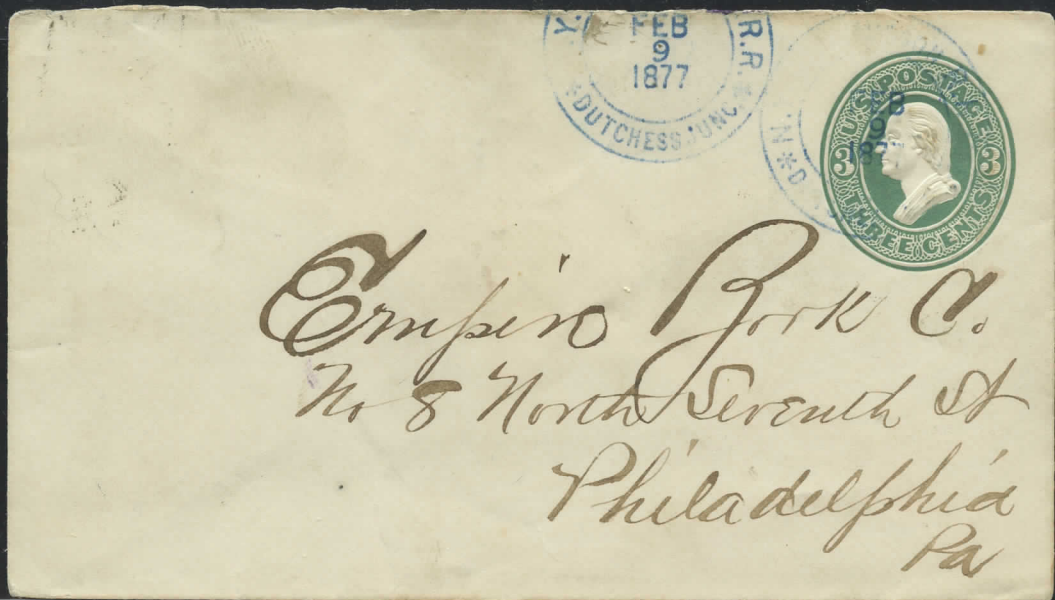 FEB
9
1877
R.R.
*DUTCHESS JUNC.*
U.S. POSTAGE
3 3
THREE CENTS
N *D
Empire Book C.
No 8 North Seventh St
Philadelphia
Pa